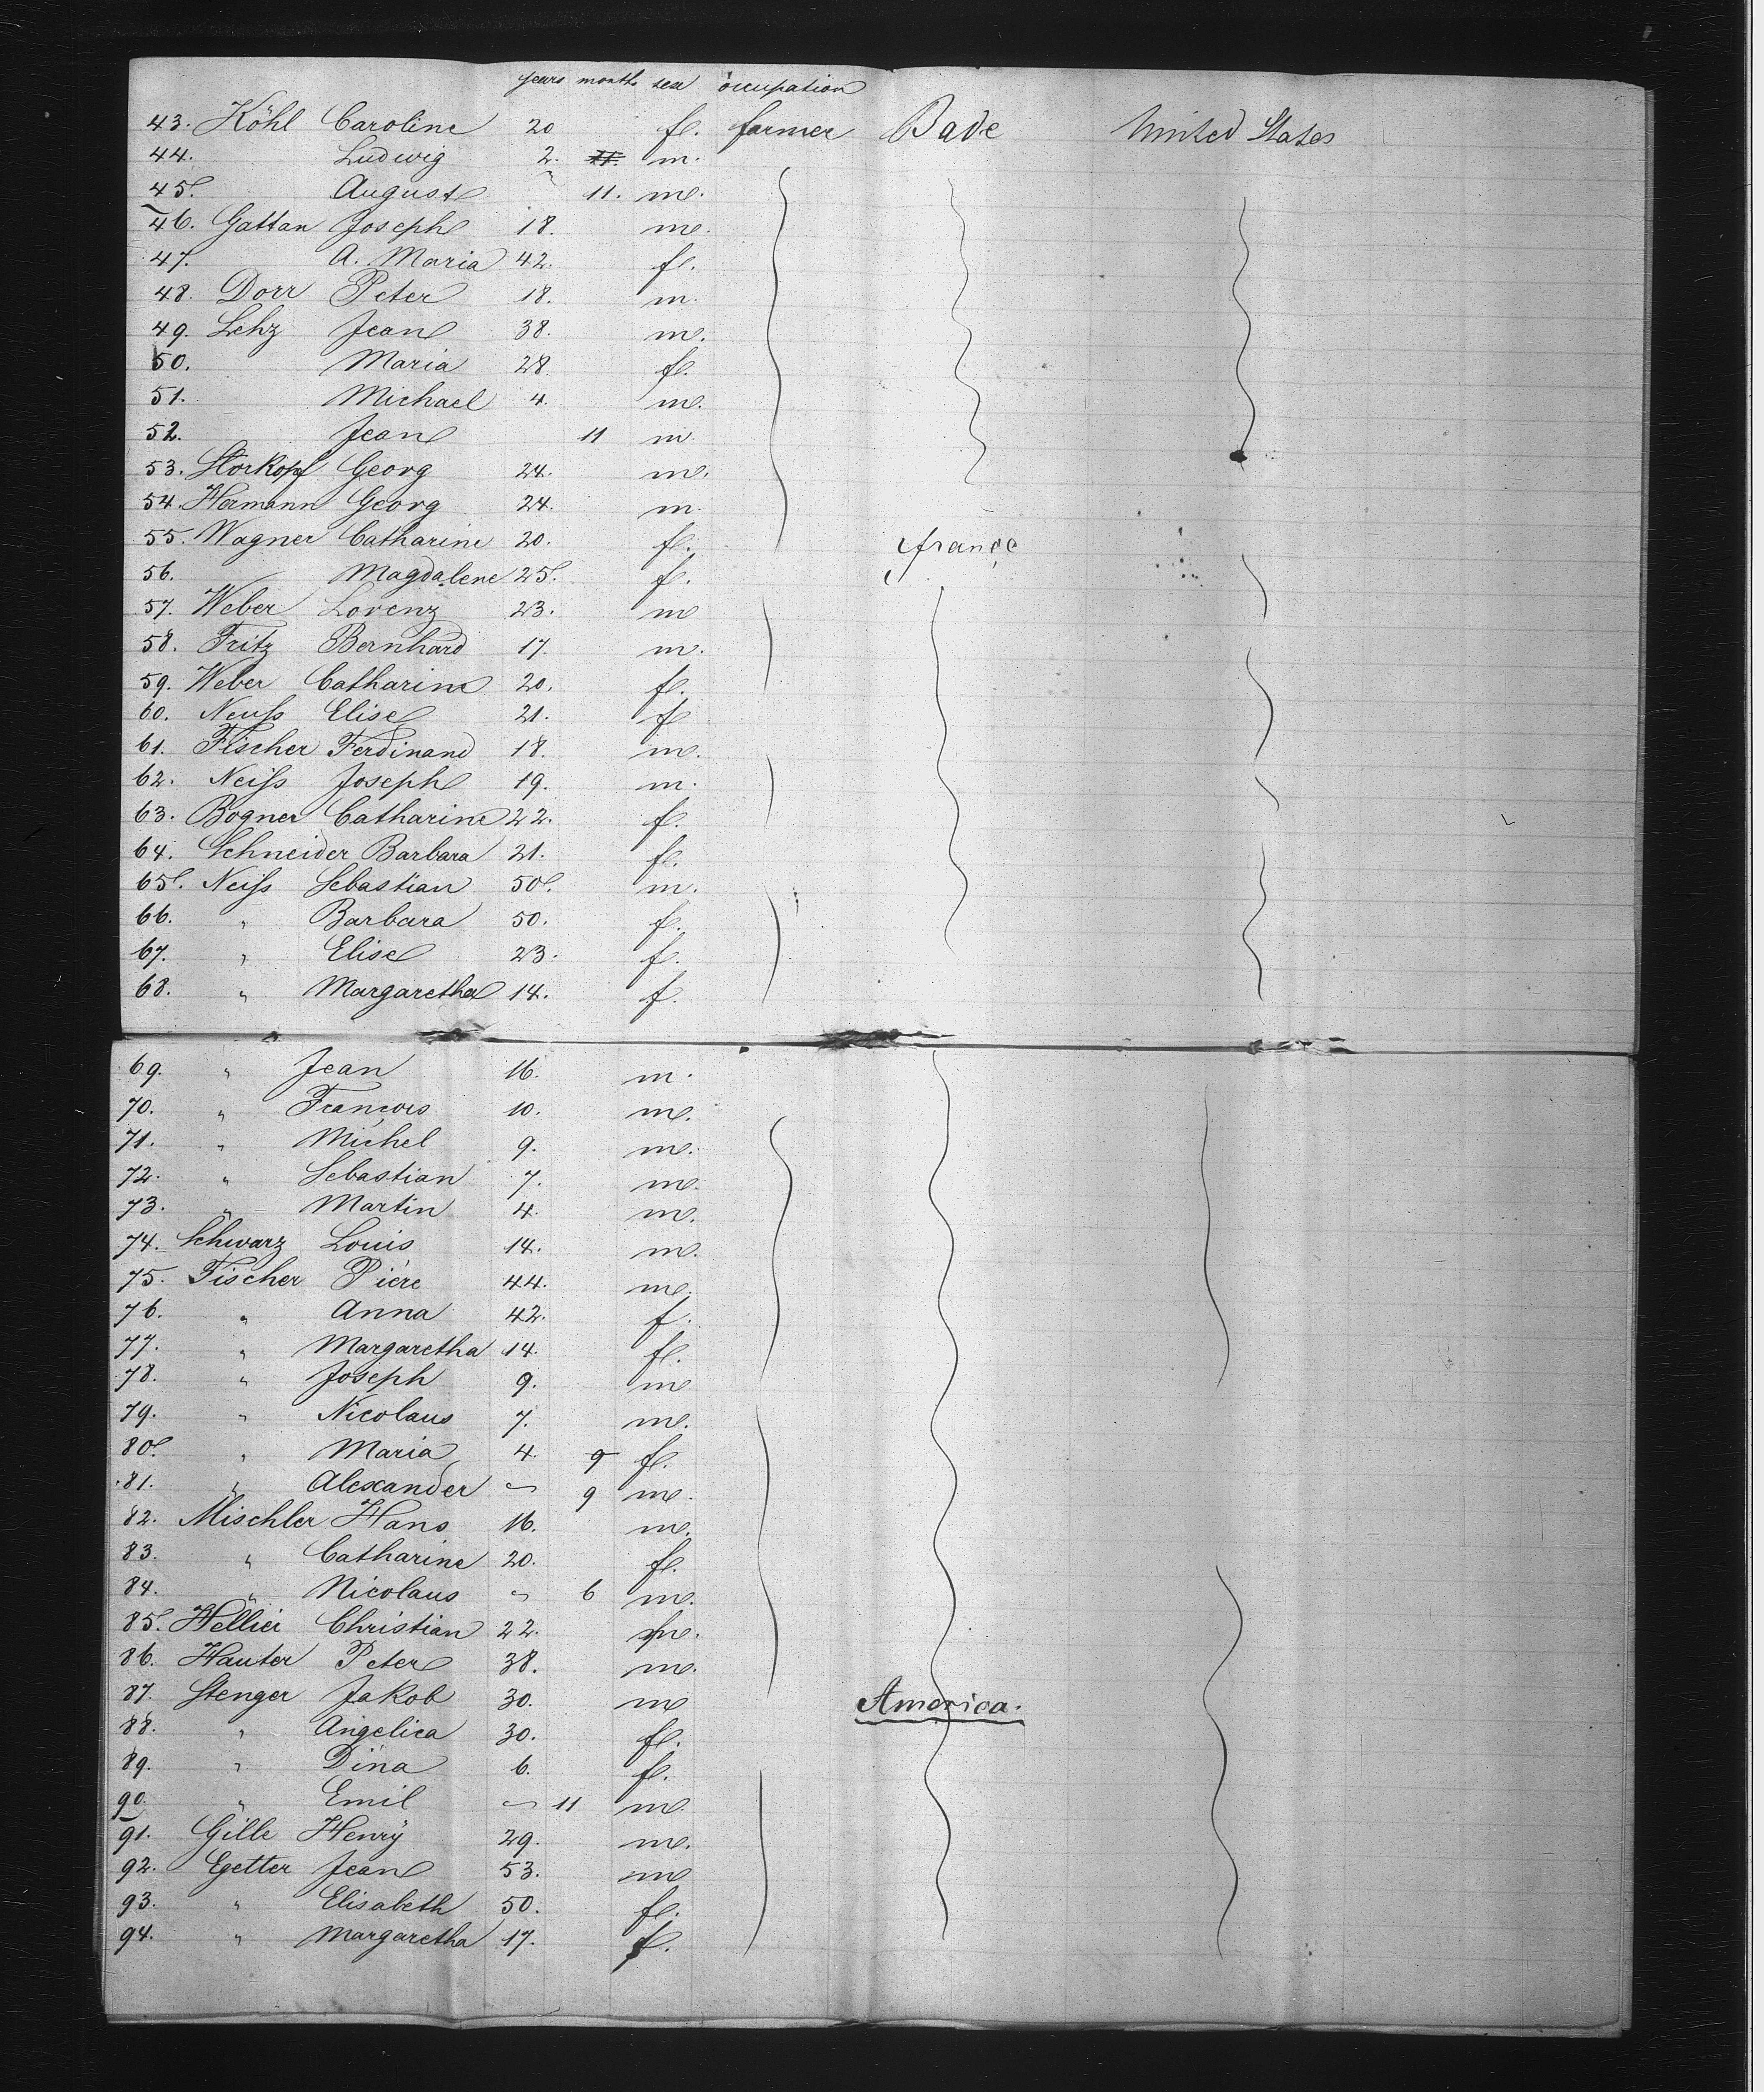 years months sex occupation
43. Köhl Caroline 20 f. farmer Bade United States
44. Ludwig 2. m.
45. August 11. m.
46. Gattan Joseph 18. m.
47. A. Maria 42. f.
48. Dorr Peter 18. m.
49. Lehz Jean 38. m.
50. Maria 28. f.
51. Michael 4. m.
52. Jean 11 m.
53. Storkopf Georg 24. m.
54. Hermann Georg 24. m.
55. Wagner Catharine 20. f. france
56. Magdalene 25. f.
57. Weber Lorenz 23. m
58. Fritz Bernhard 17. m.
59. Weber Catharine 20. f.
60. Neuſs Elise 21. f
61. Fischer Ferdinand 18. m.
62. Neiſs Joseph 19. m.
63. Bogner Catharine 22. f.
64. Schneider Barbara 21. f.
65. Neiſs Sebastian 50. m.
66. " Barbara 50. f.
67. " Elise 23. f.
68. " Margaretha 14. f.
69. " Jean 16. m.
70. " François 10. m.
71. " Michel 9. m.
72. " Sebastian 7. m.
73. " Martin 4. m.
74. Schwarz Louis 14. m.
75. Fischer Piére 44. m.
76. " Anna 42. f.
77. " Margaretha 14. f.
78. " Joseph 9. m
79. " Nicolaus 7. m.
80. " Maria 4. 9 f.
81. " Alexander 9 m.
82. Mischler Hans 16. m.
83. " Catharine 20. f.
84. " Nicolaus " 6 m.
85. Hellici Christian 22. m.
86. Hauter Peter 38. m.
87. Stenger Jakob 30. m America.
88. " Angelica 30. f.
89. " Dina 6. f.
90. " Emil 11 m.
91. Gille Henrÿ 29. m.
92. Egetter Jean 53. m
93. " Elisabeth 50. f.
94. " Margaretha 17. f.